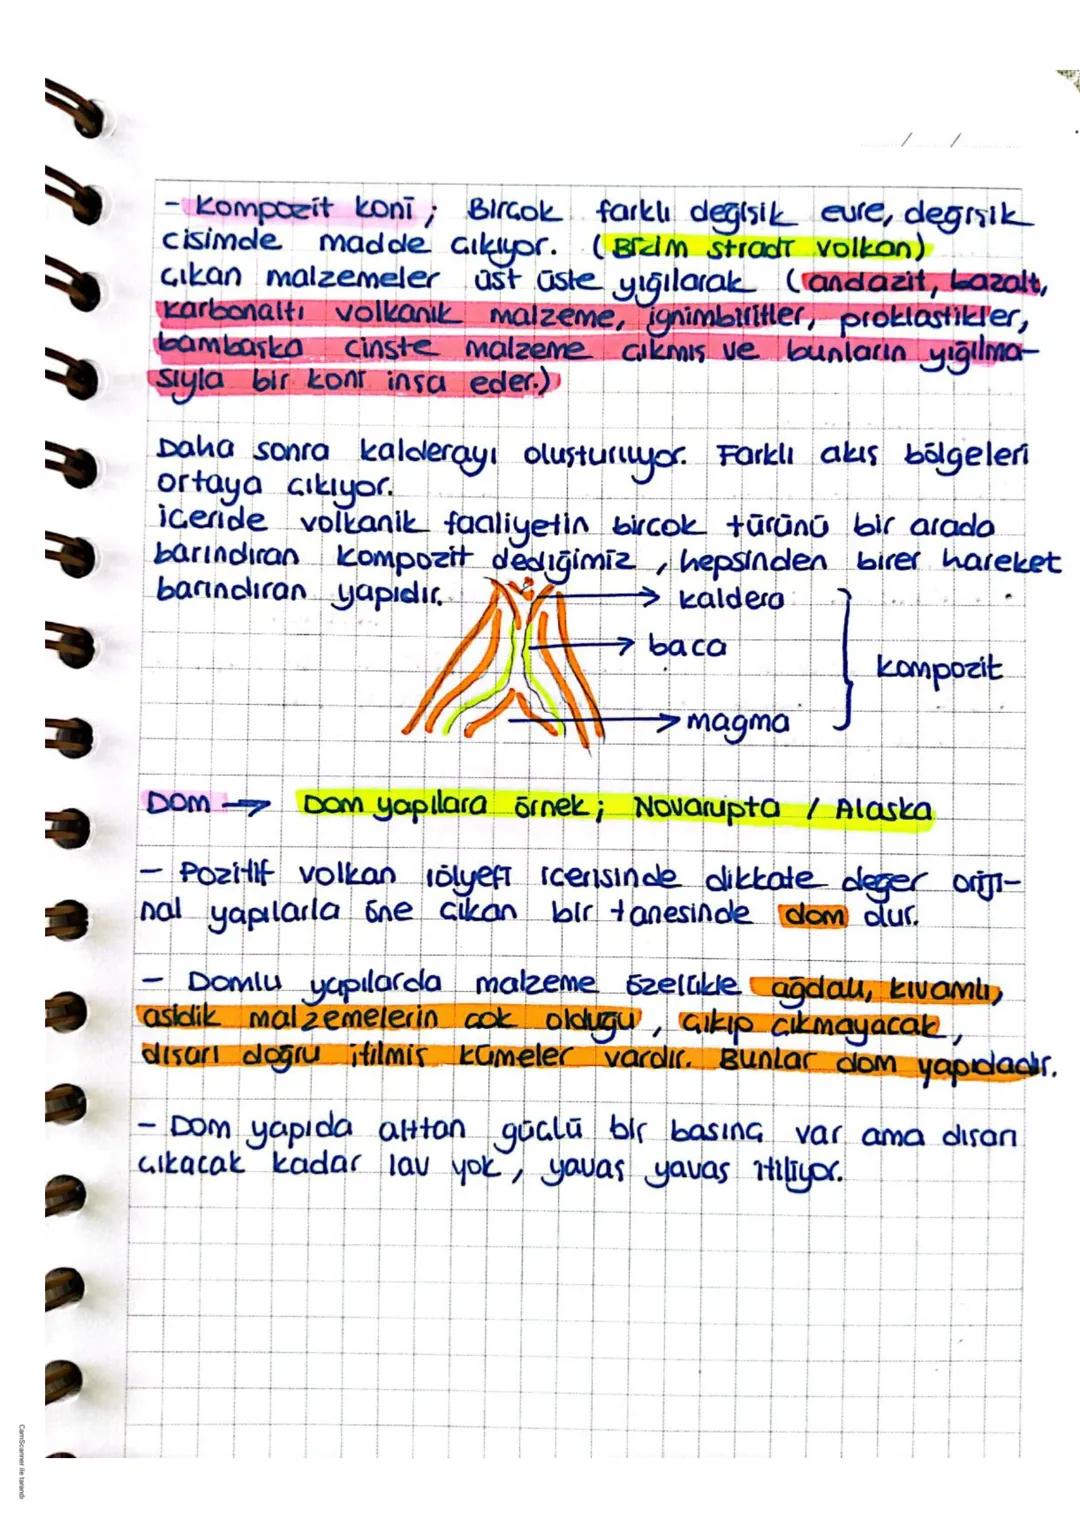 / /
- Kompozit koni ; Birçok farklı değişik evre, değişik
cisimde madde çıkıyor. ( Bizim stradi volkan)
çıkan malzemeler üst üste yığılarak (andazit, bazalt,
karbonaltı volkanik malzeme, ignimbiritler, proklastikler,
bambaşka cinste malzeme çıkmış ve bunların yığılma-
sıyla bir koni inşa eder.)
Daha sonra kalderayı oluşturuyor. Farklı akış bölgeleri
ortaya çıkıyor.
içeride volkanik faaliyetin birçok türünü bir arada
barındıran kompozit dediğimiz , hepsinden birer hareket
barındıran yapıdır.
kaldera
baca
kompozit
magma
DOM → Dom yapılara örnek ; Novarupta / Alaska
- Pozitif volkan rölyefi içerisinde dikkate değer oriji-
nal yapılarla öne çıkan bir tanesinde dom dur.
- Domlu yapılarda malzeme özellikle ağdalı, kıvamlı,
asidik malzemelerin çok olduğu , çıkıp çıkmayacak ,
dışarı doğru itilmiş kümeler vardır. Bunlar dom yapıdadır.
- Dom yapıda alttan güçlü bir basınç var ama dışarı
çıkacak kadar lav yok , yavaş yavaş itiliyor.
CamScanner ile tarandı